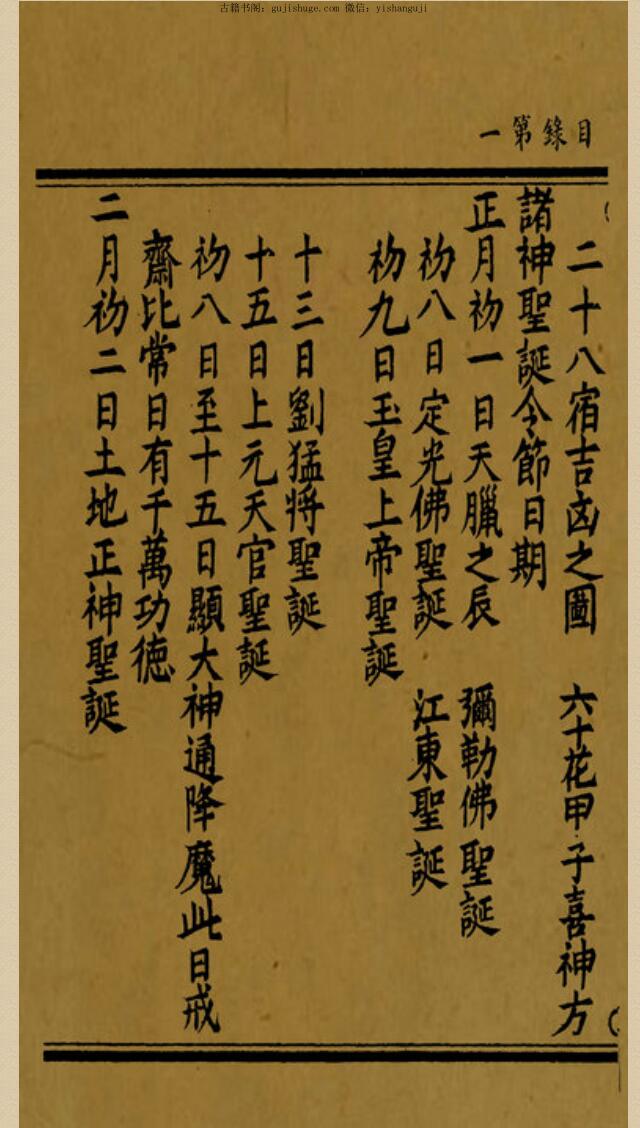 古籍书阁：gujishuge.com 微信：yishanguji
目錄第一
二十八宿吉凶之圖 六十花甲子喜神方
諸神聖誕令節日期
正月初一日天臘之辰 彌勒佛聖誕
初八日定光佛聖誕 江東聖誕
初九日玉皇上帝聖誕
十三日劉猛將聖誕
十五日上元天官聖誕
初八日至十五日顯大神通降魔此日戒
齋比常日有千萬功德
二月初二日土地正神聖誕